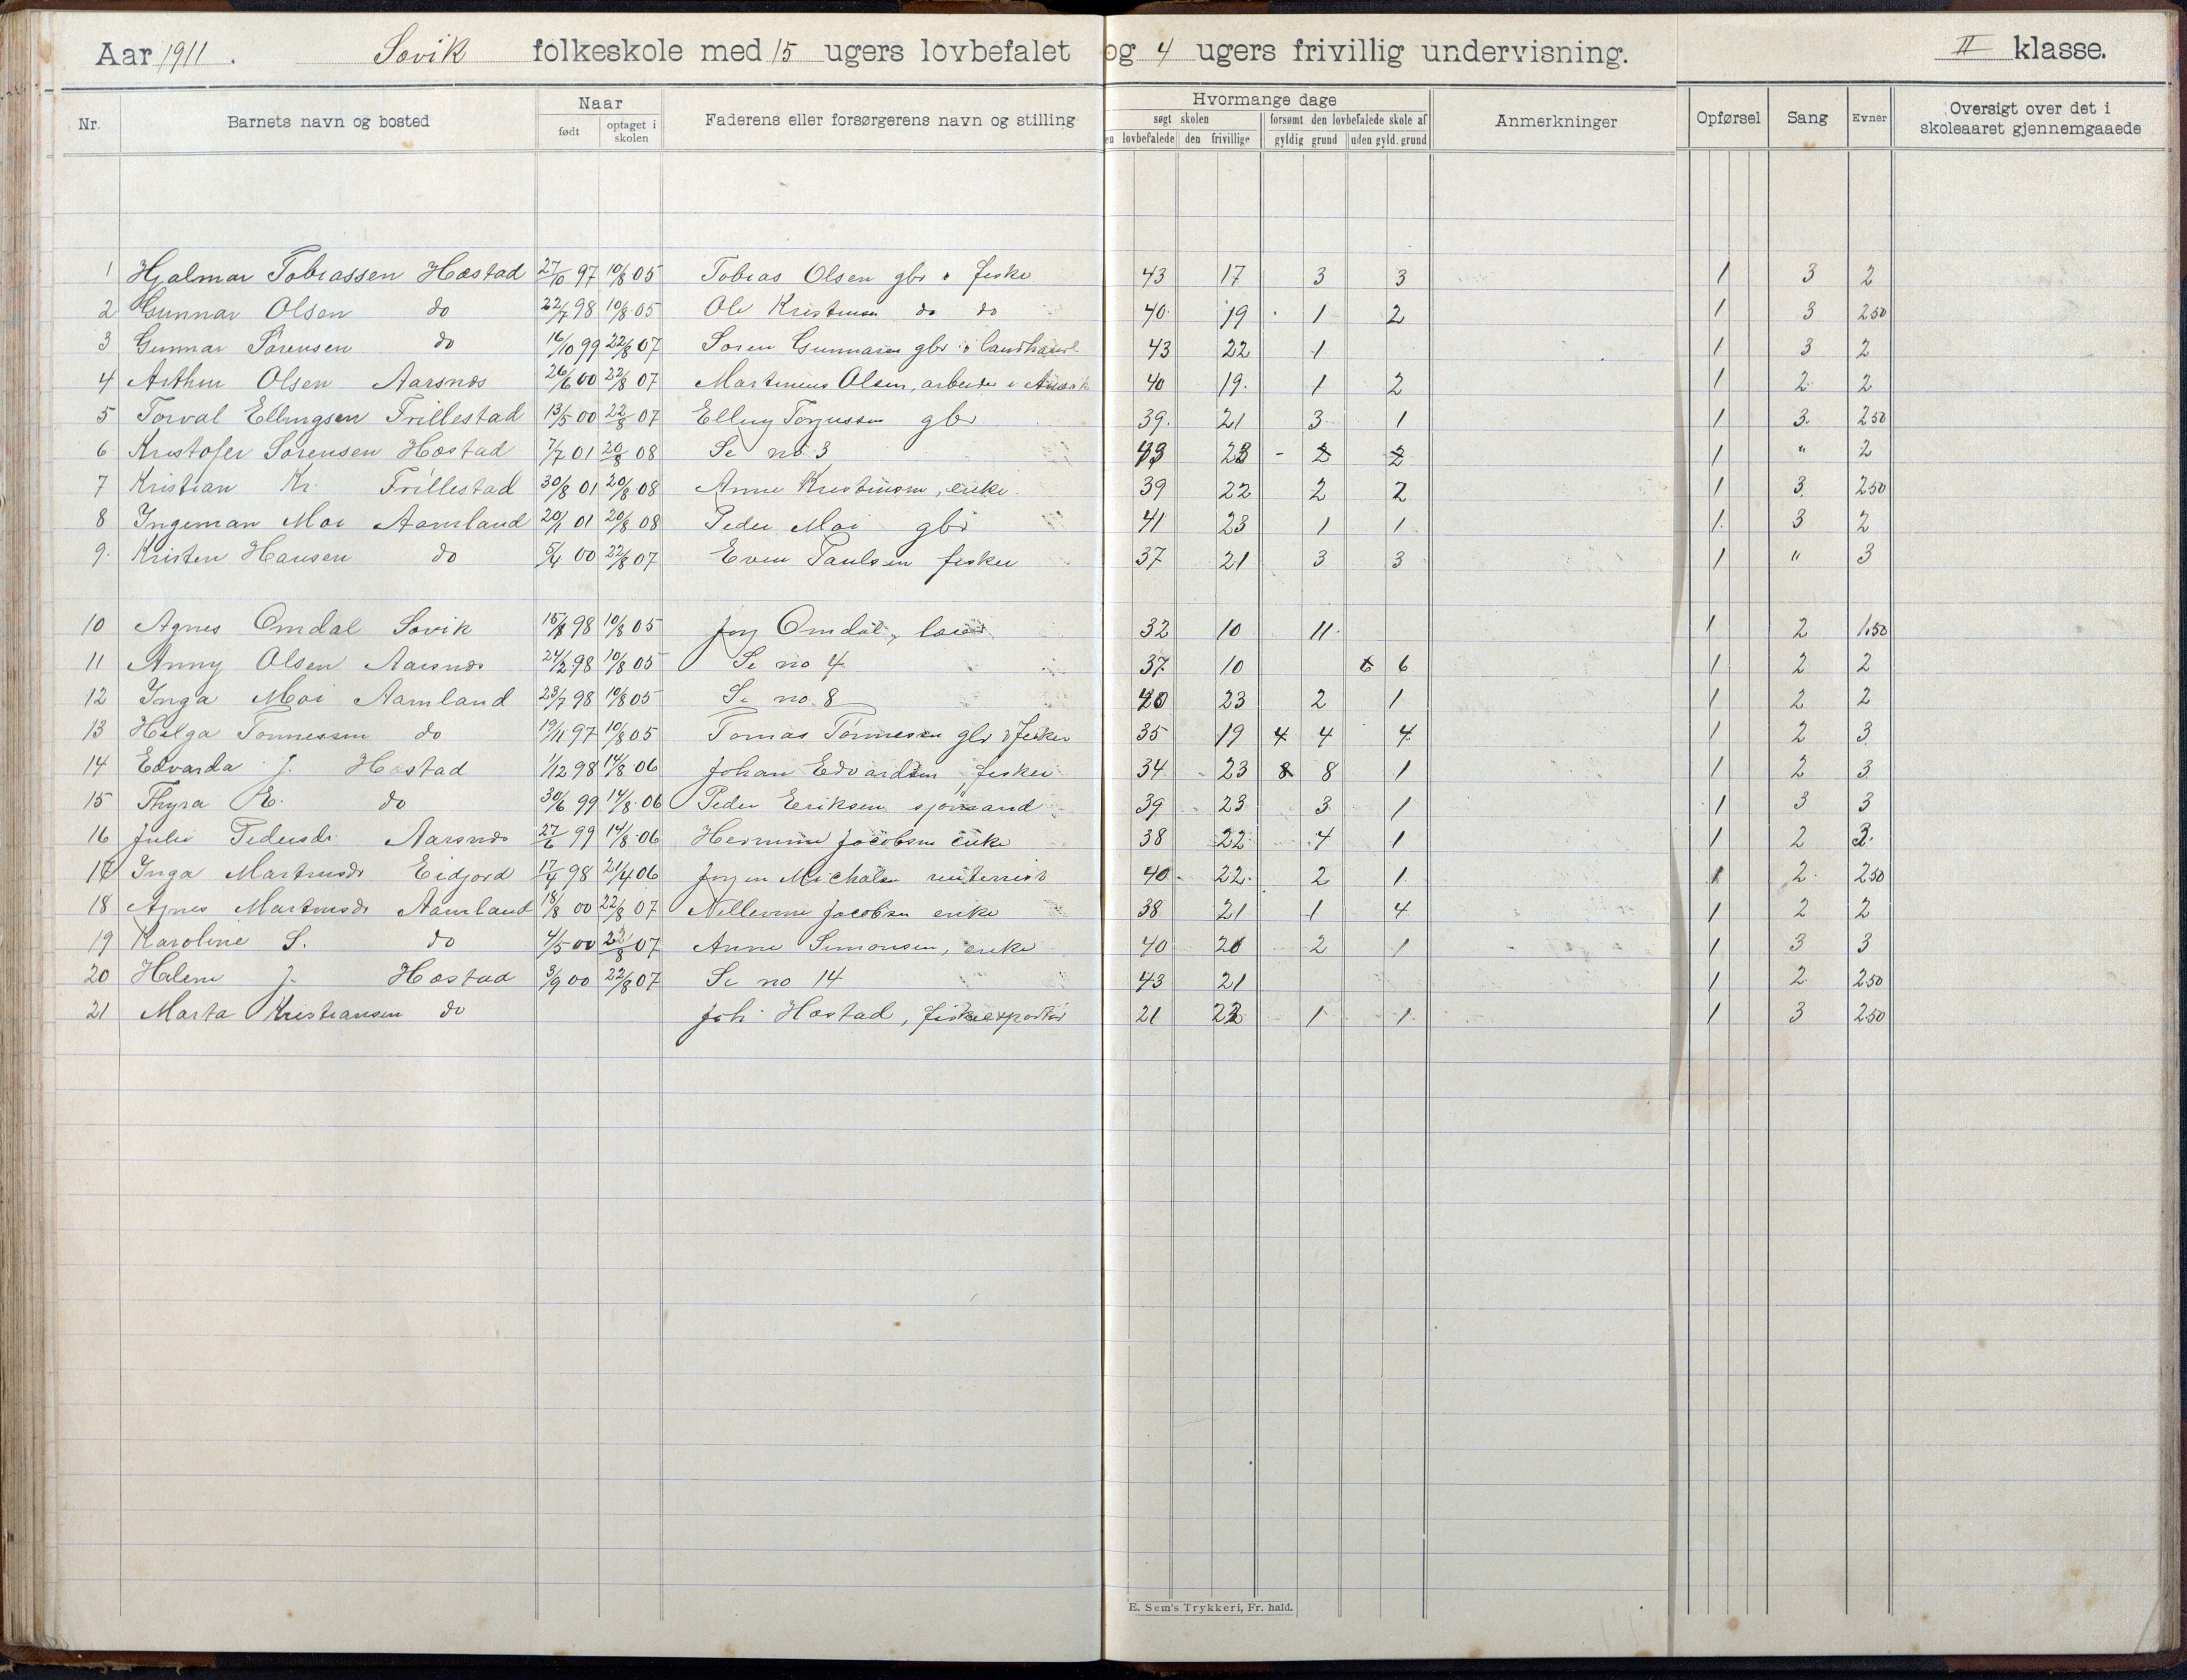 Aar 1911. Søvik folkeskole med 15 ugers lovbefalet og 4 ugers frivillig undervisning. II klasse.
Nr. Barnets navn og bosted Naar født optaget i skolen Faderens eller forsørgerens navn og stilling Hvormange dage søgt skolen en lovbefalede den frivillige forsømt den lovbefalede skole af gyldig grund uden gyld. grund Anmerkninger Opførsel Sang Evner Oversigt over det i skoleaaret gjennemgaaede
1 Hjalmar Tobiassen Hæstad 27/10 97 10/8 05 Tobias Olsen gbr & fisker 43 17 3 3 1 3 2
2 Gunnar Olsen do 22/7 98 10/8 05 Ole Kristensen do do 40 19 1 2 1 3 2.50
3 Gunnar Sørensen do 16/10 99 22/8 07 Søren Gunnarsen gbr & landhandl 43 22 1 1 3 2
4 Arthur Olsen Aarsnes 26/6 00 22/8 07 Martinius Olsen, arbeider i 40 19 1 2 1 2 2
5 Torval Ellingsen Trillestad 13/5 00 22/8 07 Elling Torjussen gbr 39 21 3 1 1 3 2.50
6 Kristofer Sørensen Hæstad 7/7 01 20/8 08 Se no 3 43 23 - 2 2 1 " 2
7 Kristian Kr. Trillestad 30/8 01 20/8 08 Anne Kristensen, enke 39 22 2 2 1 3 2.50
8 Ingeman Moi Aamland 20/1 01 20/8 08 Peder Moi gbr 41 23 1 1 1 3 2
9. Kristen Hansen do 5/4 00 22/8 07 Even Paulsen fisker 37 21 3 3 1 " 3
10 Agnes Omdal Søvik 15/8 98 10/8 05 Jørg Omdal, lærer 32 10 11 1 2 1.50
11 Anny Olsen Aarsnes 24/2 98 10/8 05 Se no 4 37 10 6 6 1 2 2
12 Inga Moi Aamland 23/7 98 10/8 05 Se no 8 40 23 2 1 1 2 2
13 Helga Tønnessen do 19/11 97 10/8 05 Tomas Tønnessen gbr & fisker 35 19 4 4 4 1 2 3
14 Edvarda J. Hæstad 1/12 98 14/8 06 Johan Edvardsen, fisker 34 23 8 8 1 1 2 3
15 Thyra E. do 30/6 99 14/8 06 Peder Eriksen sjømand 39 23 3 1 1 3 3
16 Julie Pedersdr Aarsnes 27/6 99 14/8 06 Hermine Jacobsen enke 38 22 4 1 1 2 3
17 Inga Martinsdr Eidjord 17/4 98 21/4 06 Jørgen Michalsen 40 22 2 1 1 2 2.50
18 Agnes Martinsdr Aamland 18/8 00 22/8 07 Nellevine Jacobsen enke 38 21 1 4 1 2 2
19 Karoline S. do 4/5 00 22/8 07 Anne Simonsen, enke 40 20 2 1 1 3 3
20 Helene J. Hæstad 3/9 00 22/8 07 Se no 14 43 21 1 2 2.50
21 Marta Kristiansen do Joh. Hæstad, fiskeexportør 21 22 1 1 1 3 2.50
E. Sem's Trykkeri, Fr. hald.